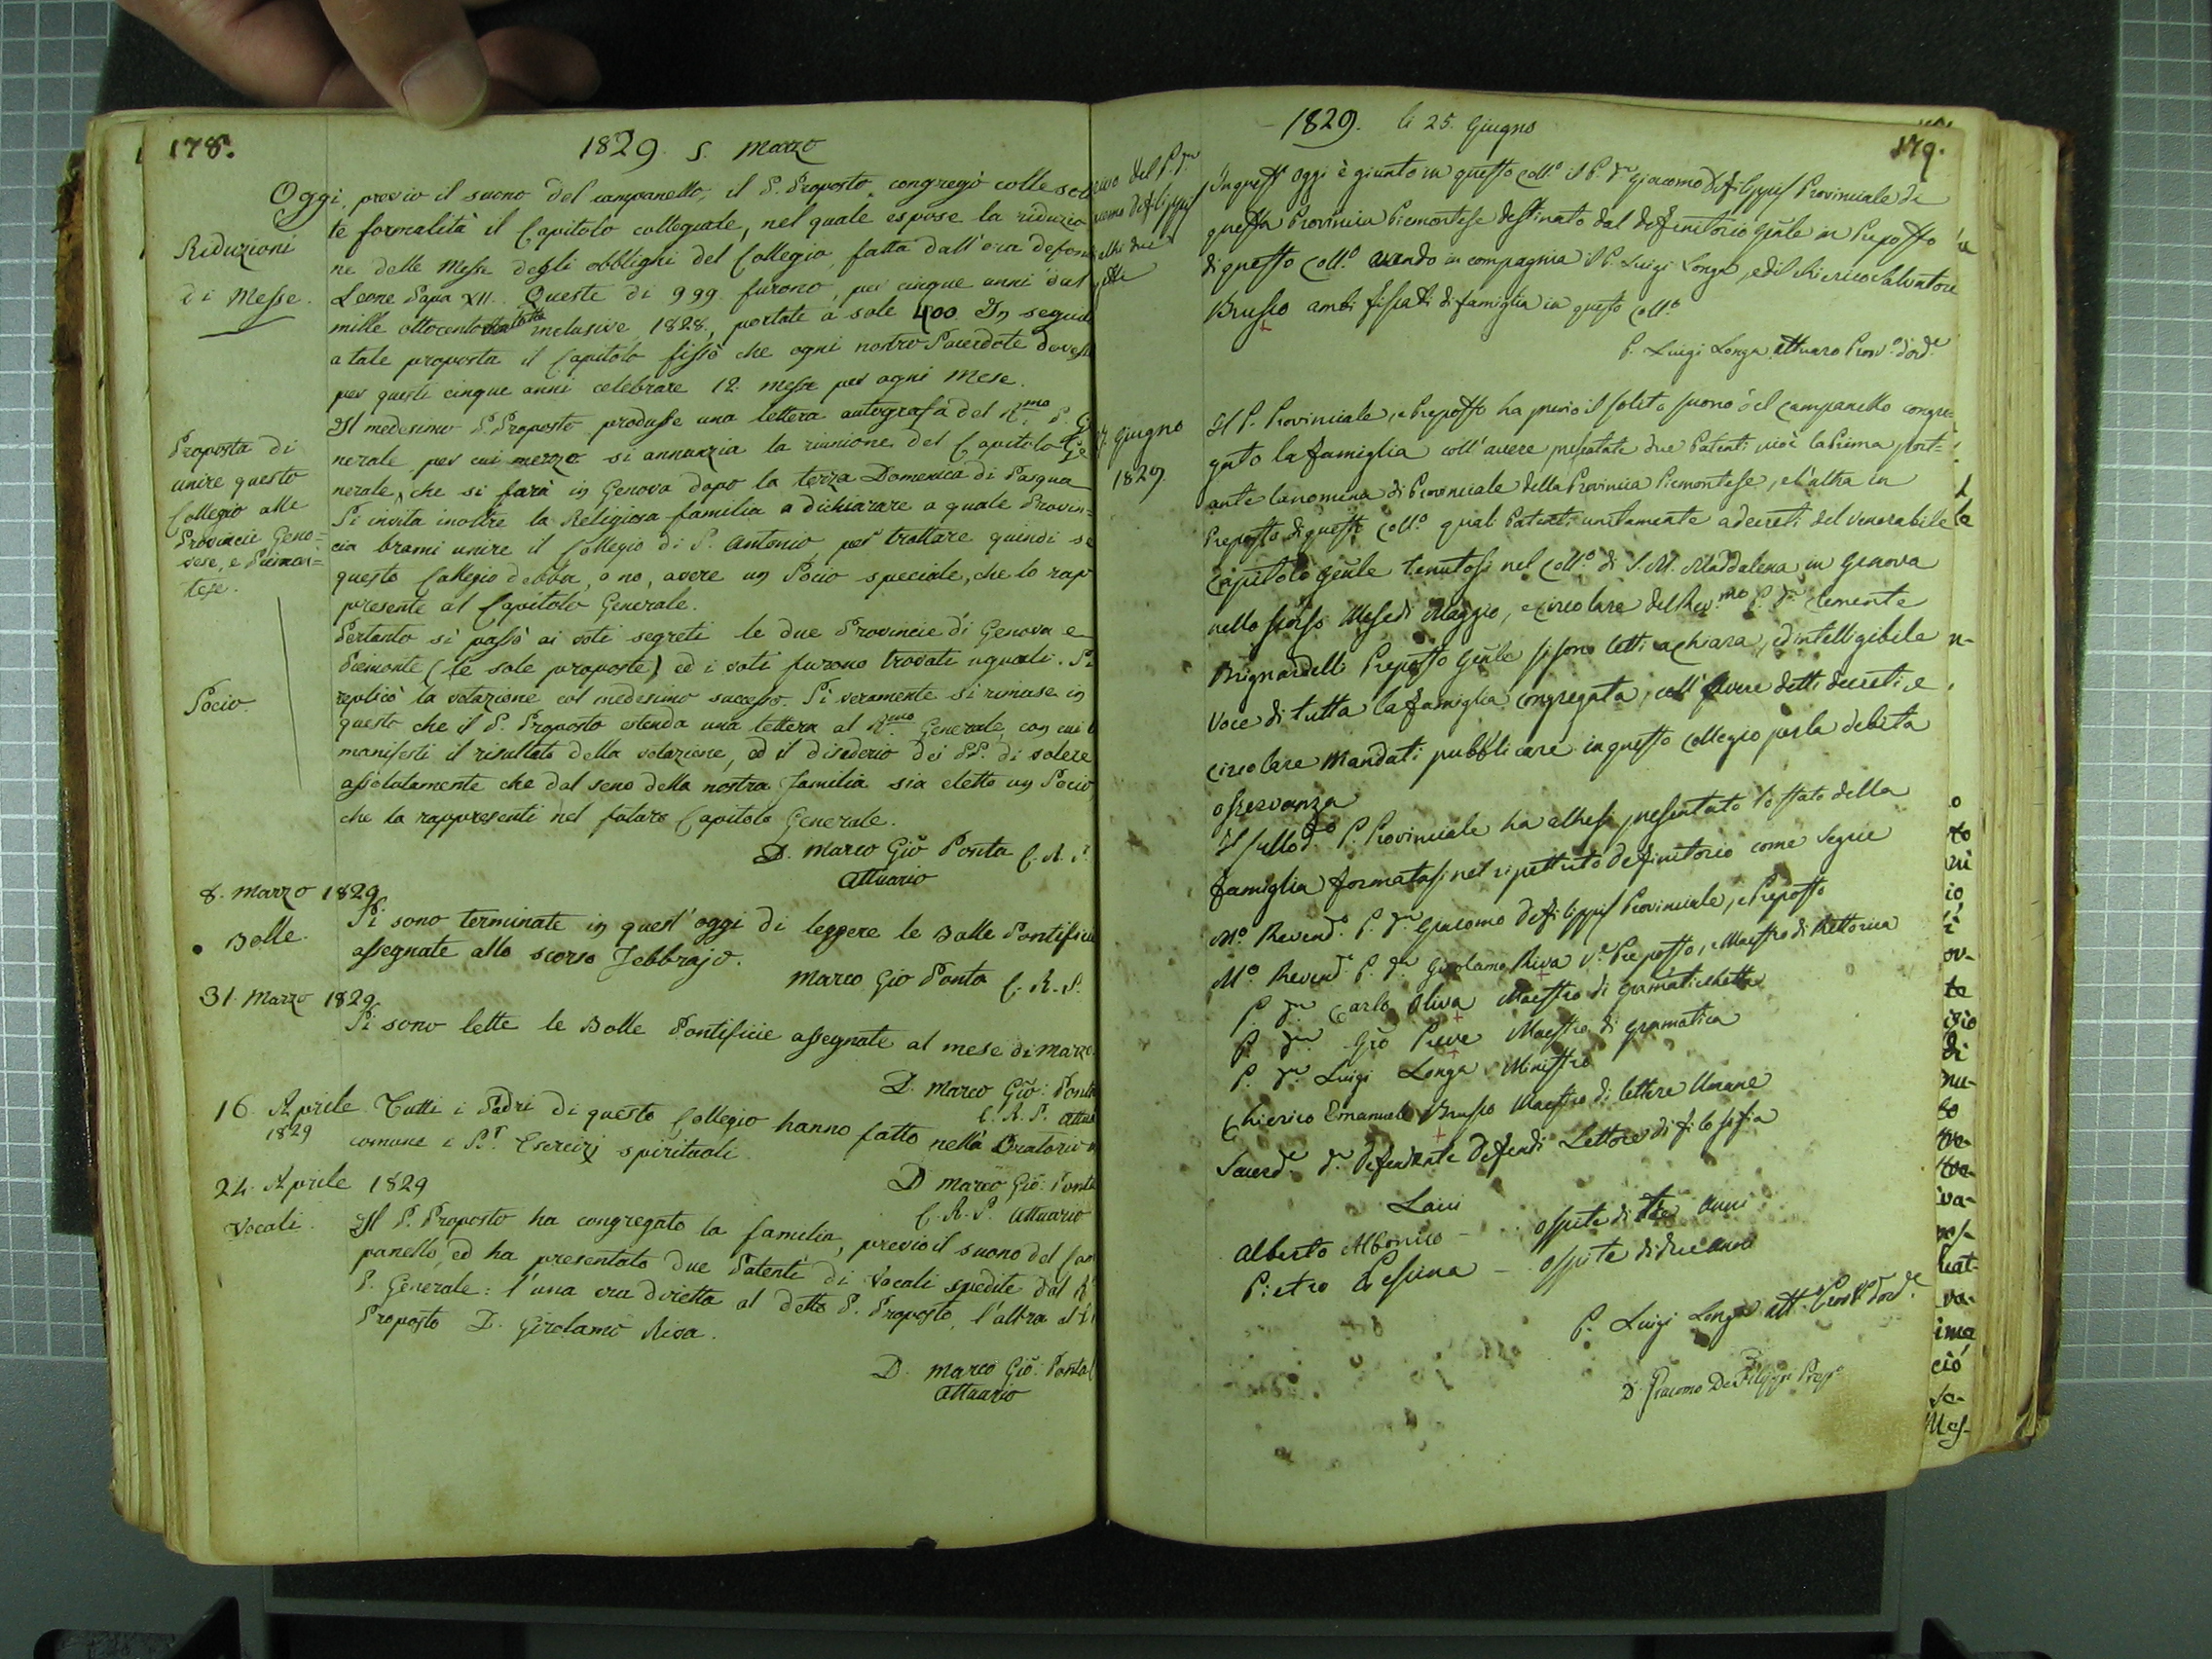 178.
1829. 5. Marzo
Oggi, previo il suono del campanello, il P. Proposto congregò colle soli
te formalità il Capitolo collegiale, nel quale espose la riduzio
Riduzioni
di Messe.
ne delle Messe degli obblighi del Collegio, fatta dall'ora defon
Leone Papa XII. Queste di 999 furono, per cinque anni dal
mille ottocento inclusive 1828, portate a sole 400. In seguito
a tale proposta il Capitolo fissò che ogni nostro Sacerdote dovesse
per questi cinque anni celebrare 12. messe per ogni Mese.
Proposta di
unire questo
Collegio alle
Provincie Geno=
vese, e Piemon=
tese.
Il medesimo P. Proposto produsse una lettera autografa del R.mo P. Ge
nerale per cui mezzo si annunzia la riunione del Capitolo Ge
nerale, che si farà in Genova dopo la terza Domenica di Pasqua
Si invita inoltre la Religiosa familia a dichiarare a quale Provin=
cia brami unire il Collegio di S. Antonio, per trattare quindi se
questo Collegio debba, o no, avere un Socio speciale, che lo rap
presente al Capitolo Generale.
Pertanto si passò ai voti segreti le due Provincie di Genova e
Piemonte (le sole proposte) ed i voti furono trovati uguali. Si
Socio.
replicò la votazione col medesimo successo. Si veramente si rimase in
questo che il P. Proposto estenda una lettera al R.mo Generale, con cui
manifesti il risultato della votazione, ed il disederio dei PP. di volere
assolutamente che dal seno della nostra familia sia eletto un Socio,
che la rappresenti nel futuro Capitolo Generale.
D. Marco Giõ Ponta C. R. S.
Attuario
8. Marzo 1829
Bolle.
Si sono terminate in quest'oggi di leggere le Bolle Pontificie
assegnate allo scorso Febbrajo.
Marco Gio Ponta C. R. S.
31. Marzo 1829.
Si sono lette le Bolle Pontificie assegnate al mese di Marzo.
D. Marco Giõ: Ponta
C. R. S. Attua
16. Aprile
1829
Tutti i Padri di questo Collegio hanno fatto nella Oratorio
comune i S.i Esercizj spirituali.
D Marco Giõ: Ponta
C. R. S. Attuario
24. Aprile 1829
Vocali.
Il P. Proposto ha congregato la familia, previo il suono del Cam
panello, ed ha presentato due Patenti di Vocali spedite dal R
P. Generale: l'una era diretta al detto P. Proposto, l'altra al Vi
Proposto D. Girolamo Riva.
D. Marco Giõ: Ponta
Attuario
1829. li 25. Giugno
179.
rivo del P. Dn
como Defilippis
altri due
In quest'oggi è giunto in questo coll.o il P. Dn Giacomo Defilippis Provinciale di
questa Provincia Piemontese destinato dal definitorio gñle in Preposto
di questo coll.o avendo in compagnia il P. Luigi Longa, ed il chierico Salvatore
Brusco ambi fissati di famiglia in questo coll.o
P. Luigi Longa Attuaro Prov.o d'ord.e
Giugno
1829.
Il P. Provinciale, e Preposto ha previo il solito suono del campanello congre=
gato la famiglia coll'avere presentate due Patenti cioè la Prima port=
ante la nomina di Provinciale della Provincia Piemontese, e l'altra in
Preposto di questo coll.o quali Patenti unitamente a decreti del Venerabile
Capitolo gñle tenutosi nel coll.o di S. M. Maddalena in Genova
nello scorso Mese di Maggio, e circolare del Rev.mo P. Dn Clemente
Brignardelli Preposto gñle si sono letti a chiara, ed intelligibile
voce di tutta la famiglia congregata, coll'avere detti decreti, e
circolare mandati pubblicare in questo collegio per la debita
osservanza
Il sullod.o P. Provinciale ha altresì presentato lo stato della
famiglia formatasi nel rispettivo definitorio come segue
M.o Revend.o P. Dn Giacomo Defilippis Provinciale, e Preposto
M.o Revend.o P. Dn Girolamo Riva V.e Preposto, e Maestro di Rettorica
P. Dn Carlo Oliva Maestro di gramatichetta
P. Dn Gio Pieve Maestro di gramatica
P. Dn Luigi Longa Ministro
Chierico Emanuele Brusco Maestro di lettere Umane
Sacerd.e Dn Defendente Defendi Lettore di filosofia
Laici
Alberto Albonico - ospite di tre anni
Pietro Pessina - ospite di due anni
P. Luigi Longa att. Prov. d'ord.e
D. Giacomo De Filippi Prep.o